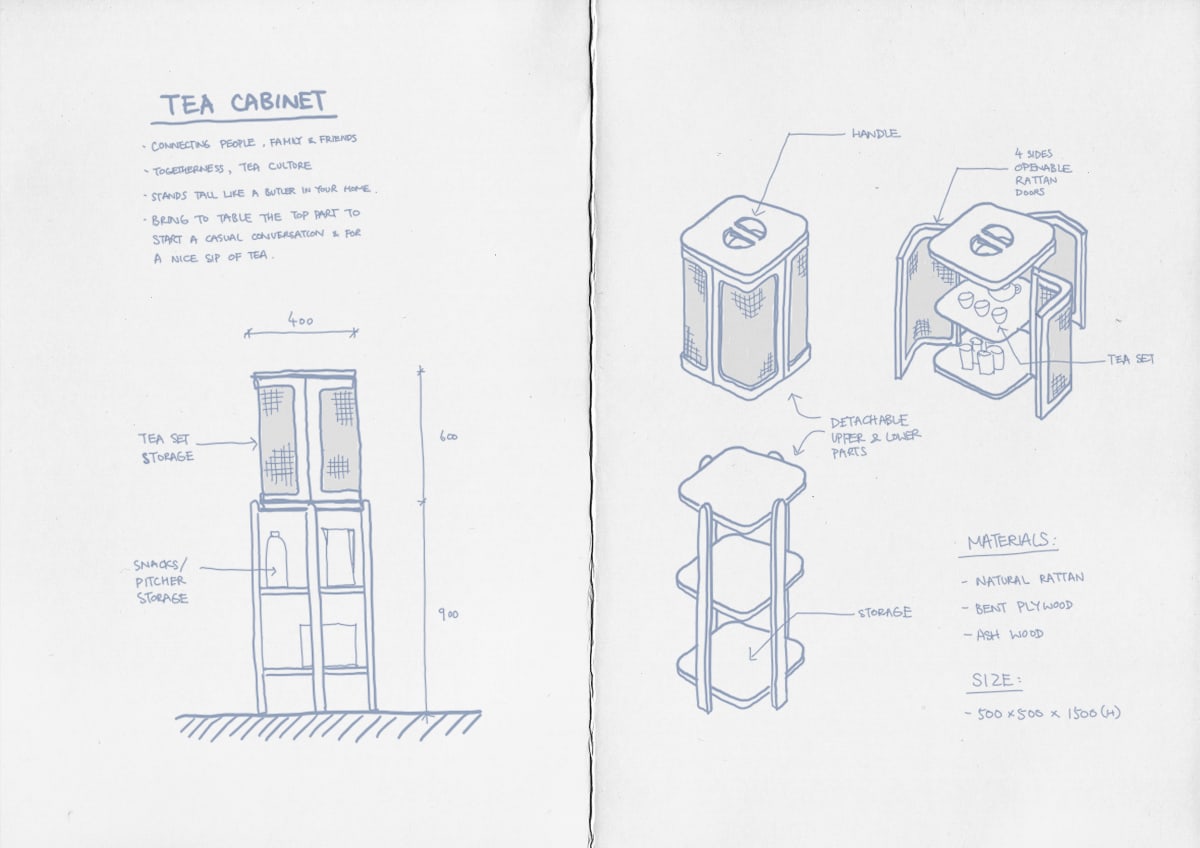 TEA CABINET
- CONNECTING PEOPLE, FAMILY & FRIENDS
- TOGETHERNESS, TEA CULTURE
- STANDS TALL LIKE A BUTLER IN YOUR HOME.
- BRING TO TABLE THE TOP PART TO
START A CASUAL CONVERSATION & FOR
A NICE SIP OF TEA.
400
600
TEA SET
STORAGE
SNACKS/
PITCHER
STORAGE
900
HANDLE
4 SIDES
OPENABLE
RATTAN
DOORS
TEA SET
DETACHABLE
UPPER & LOWER
PARTS
STORAGE
MATERIALS:
- NATURAL RATTAN
- BENT PLYWOOD
- ASH WOOD
SIZE:
- 500 x 500 x 1500 (H)